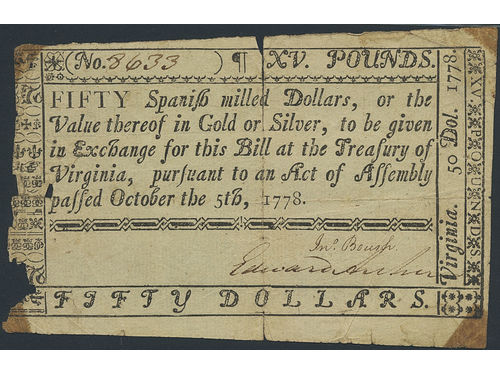 (No. 8633 ) ¶ XV. POUNDS.
FIFTY Spaniſh milled Dollars, or the
Value thereof in Gold or Silver, to be given
in Exchange for this Bill at the Treaſury of
Virginia, purſuant to an Act of Aſſembly
paſſed October the 5th, 1778.
Jnº. Boush
Edward Archer
FIFTY DOLLARS.
Virginia. 50 Dol. 1778.
XV POUNDS